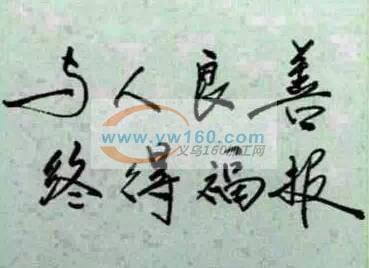 与人良善
www.yw160.com
义乌160加工网
终得福报